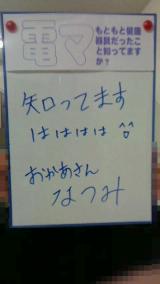 電マ
もともと健康
器具だったこ
と知ってます
か？
知ってます
はははは
おかあさん
なつみ